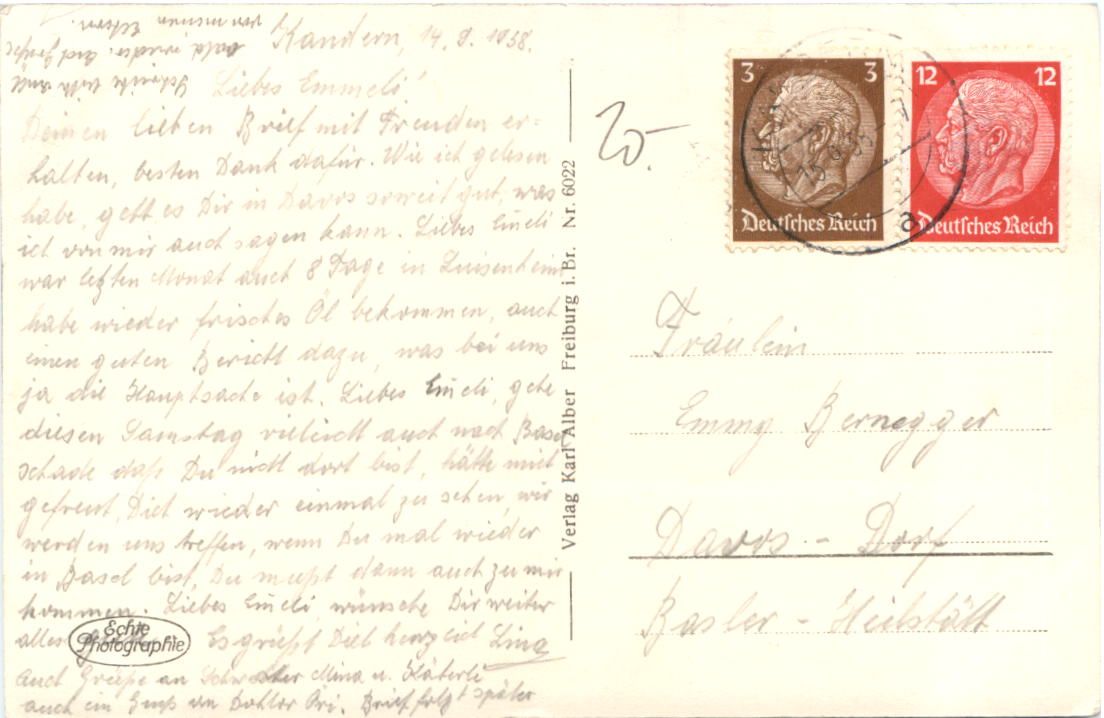 Kandern, 14.9.1938.
Liebes Emmeli!
Deinen lieben Brief mit Freuden er-
halten, besten Dank dafür. Wie ich gelesen
habe, geht es Dir in Davos soweit gut, was
ich von mir auch sagen kann. Liebes Emeli
war letzten Monat auch 8 Tage in Luisenheim
habe wieder frisches Öl bekommen, auch
einen guten Bericht dazu, was bei uns
ja die Hauptsache ist. Liebes Emeli, gehe
diesen Samstag vieleicht auch nach Basel
schade daß Du nicht dort bist, hätte mich
gefreut, Dich wieder einmal zu sehen, wir
werden uns treffen, wenn Du mal wieder
in Basel bist, Du mußt dann auch zu mir
kommen. Liebes Emeli, wünsche Dir weiter
alles Es grüßt Dich herzlich Lina
Auch Grüße an Schwester Mina u. Käterli
auch ein Gruß an Doktor Brief folgt später
Schreibe bitte
bald wieder. Auch Grüße
von meinen Eltern.
Echte
Photographie
Verlag Karl Alber Freiburg i. Br. Nr. 6022
20.-
3 3
Deutsches Reich
12 12
Deutsches Reich
15.9.38-7
a
Fräulein
Emmy Bernegger
Davos - Dorf
Basler - Heilstätt